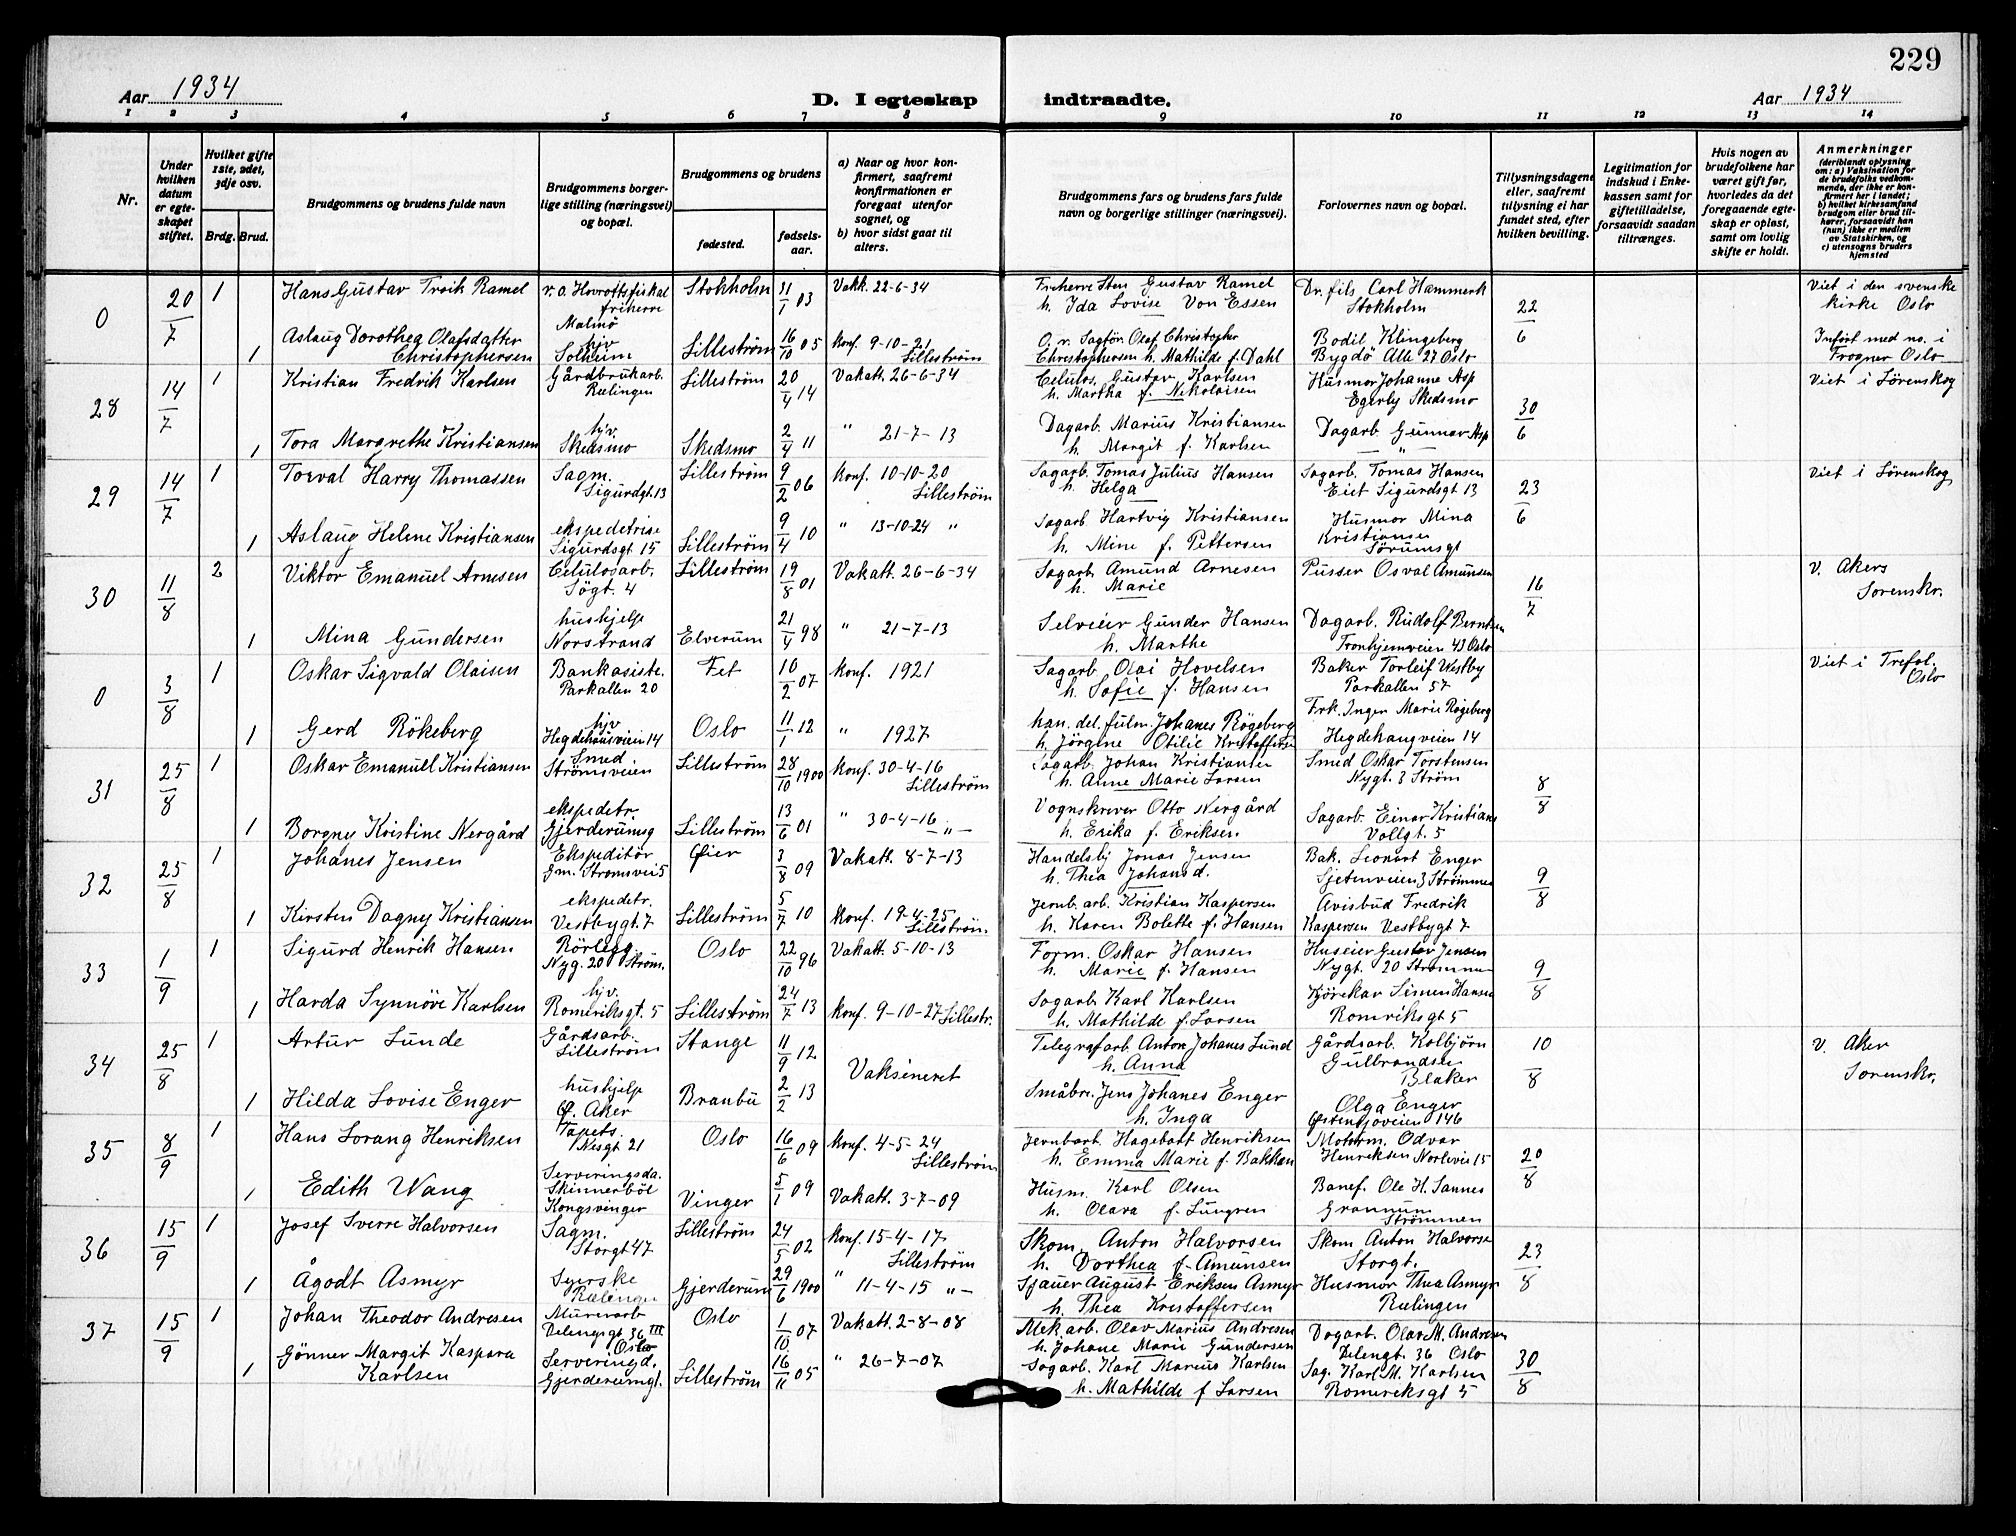 229
Aar 1934
D. I egteskap
indtraadte.
Aar 1934
1 2 3 4 5 6 7 8 9 10 11 12 13 14
Nr.
Under hvilken datum er egteskapet stiftet.
Hvilket gifte 1ste, 2det, 3dje osv.
Brdg. Brud.
Brudgommens og brudens fulde navn
Brudgommens borgerlige stilling (næringsvei) og bopæl.
Brudgommens og brudens
fødested.
fødselsaar.
a) Naar og hvor konfirmert, saafremt konfirmationen er foregaat utenfor sognet, og
b) hvor sidst gaat til alters.
Brudgommens fars og brudens fars fulde navn og borgerlige stillinger (næringsvei).
Forlovernes navn og bopæl.
Tillysningsdagene eller, saafremt tillysning ei har fundet sted, efter hvilken bevilling.
Legitimation for indskud i Enkekassen samt for giftetilladelse, forsaavidt saadan tiltrænges.
Hvis nogen av brudefolkene har været gift før, hvorledes da det foregaaende egteskap er opløst, samt om lovlig skifte er holdt.
Anmerkninger
(deriblandt oplysning om: a) Vaksination for de brudefolks vedkommende, der ikke er konfirmert her i landet;
b) hvilket kirkesamfund brudgom eller brud tilhører, forsaavidt han (hun) ikke er medlem av Statskirken, og
c) utensogns bruders hjemsted
0 20/7 1 Hans Gustav Troik Ramel v.o. Hovrettsfiskal friherre Malmö Stokholm 31/1 03 Vakk. 22-6-34 Friherre Sten Gustav Ramel h. Ida Lovise Von Essen Dr. fils Carl Hammerk Stokholm 22/6 Viet i den svenske kirke Oslo
1 Aslaug Dorothea Olafsdatter Christophersen hjv Solheim Lilleström 16/10 05 Konf. 9-10-21 Lilleström O.r. Sagför. Olaf Christopher Christophersen h. Mathilde f. Dahl Bodil Klingeberg Bygdö Alle 27 Oslo Infört med no. i Frogner Oslo
28 14/7 1 Kristian Fredrik Karlsen Gårdbrukarb. Rælingen Lilleström 20/4 14 Vakatt. 26-6-34 Celulos. Gustav Karlsen h. Martha f. Nikolaisen Husmor Johanne Asp Egerby Skedsmo 30/6 Viet i Lörenskog
1 Tora Margrethe Kristiansen hjv. Skedsmo Skedsmo 2/4 11 " 21-7-13 Dagarb. Marius Kristiansen h. Margit f. Karlsen Dagarb. Gunnar Asp — " —
29 14/7 1 Torval Harry Thomassen Sagm. Sigurdgt. 13 Lilleström 9/2 06 Konf. 10-10-20 Lilleström Sagarb. Tomas Julius Hansen h. Helga Sagarb. Tomas Hansen Eiet Sigurdsgt 13 23/6 Viet i Lörenskog
1 Aslaug Helene Kristiansen ekspedetrise Sigurdsgt. 15 Lilleström 9/4 10 " 13-10-24 " Sagarb. Hartvig Kristiansen h. Mine f. Pettersen Husmor Mina Kristiansen Sörumsgt
30 11/8 2 Viktor Emanuel Arnesen Celulosarb. Sögt. 4 Lilleström 19/8 01 Vakatt. 26-6-34 Sagarb. Amund Arnesen h. Marie Pusser Osval Amunsen 16/7 v. Akers Sorenskr.
1 Mina Gundersen hushjelp Norstrand Elverum 21/4 98 " 21-7-13 Selveier Gunder Hansen h. Marthe Dagarb. Rudolf Berntsen Tronhjemveien 43 Oslo
0 3/8 1 Oskar Sigvald Olaisen Bankasiste. Parkallen 20 Fet 10/2 07 Konf. 1921 Sagarb. Olai Hovelsen h. Sofie f. Hansen Baker Torleif Westby Parkallen 57 Viet i Trefol. Oslo
1 Gerd Rökeberg hjv Hegdehausveien 14 Oslo 11/1 12 " 1927 han. del. fulm. Johanes Rögeberg h. Jörgine Otilie Kristoffersen Frk. Inger Marie Rögeberg Hegdehaugveien 14
31 25/8 1 Oskar Emanuell Kristiansen Smed Strömsveien Lilleström 28/10 1900 Konf. 30-4-16 Lilleström Sagarb. Johan Kristiansen h. Anne Marie Larsen Smed Oskar Torstensen Nygt. 3 Ström 8/8
1 Borgny Kristine Nergård ekspedetr. Gjerderumsg Lilleström 13/6 01 " 30-4-16 — " — Vognskrever Otto Nergård h. Erika f. Eriksen Sagarb. Einar Kristians Vollgt. 5
32 25/8 1 Johanes Jensen Ekspeditör Gm. Strömsvei 5 Øier 3/8 09 Vakatt. 8-7-13 Handelsbj Jonas Jensen h. Thea Johansd. Bak. Leonart Enger Sjetenveien 3 Strömmen 9/8
1 Kirsten Dagny Kristiansen ekspedetr. Vestbygt. 7 Lilleström 5/7 10 Konf. 19-4-25 Lilleström. Jernb. arb. Kristian Kaspersen h. Karen Bolette f. Hansen Avisbud Fredrik Kaspersen Vestbygt 7
33 1/9 1 Sigurd Henrik Hansen Rörlegg. Nyg. 20 Ström. Oslo 22/10 96 Vakatt. 5-10-13 Form. Oskar Hansen h. Marie f. Hansen Huseier Gustav Jensen Nygt. 20 Strömmen 9/8
1 Harda Synnöve Karlsen hjv. Romeriksgt. 5 Lilleström 24/7 13 Konf. 9-10-27 Lillestr. Sagarb. Karl Karlsen h. Mathilde f. Larsen Kjörekar Simen Hansen Romriksgt 5
34 25/8 1 Artur Lunde Gårdsarb. Lilleström Stange 11/9 12 Vaksineret Telegrafarb. Anton Johanes Lund h. Anna Gårdsarb. Kolbjörn Gulbrandsen Blaker 10/8 v. Aker Sorenskr.
1 Hilda Lovise Enger hushjelp Ø. Aker Branbu 2/2 13 Småbr. Jens Johanes Enger h. Inga Olga Enger Østensjoveien 146
35 8/9 1 Hans Lorang Henriksen Tapets. Nesgt 21 Oslo 16/6 09 Konf. 4-5-24 Lilleström Jernbarb. Hagebatt Henriksen h. Emma Marie f. Bakken Motorm. Odvar Henriksen Norlivei 15 20/8
1 Edith Wang Serveringsda. Skinnerböl Kongsvinger Vinger 5/1 09 Vakatt. 3-7-09 Husm. Karl Olsen h. Olava f. Lungren Banef. Ole H. Sannes Granum Strömmen
36 15/9 1 Josef Sverre Halvorsen Sagm. Storgt 47 Lilleström 24/5 02 Konf. 15-4-17 Lilleström Skom. Anton Halvorsen h. Dorthea f. Amunsen Skom Anton Halvorse Storgt. 23/8
1 Ågodt Asmyr Syerske Rælingen Gjerderum 29/6 1900 " 11-4-15 " — Sjauer August Eriksen Asmyr h. Thea Kristoffersen Husmor Thea Asmyr Rælingen
37 15/9 1 Johan Theodor Andresen Murerarb Delengsgt. 36 III Oslo Oslo 1/10 07 Vakatt. 2-8-08 Mek. arb. Olav Marius Andresen h. Johane Marie Gundersen Dagarb. Olav M. Andresen Delengt. 36 Oslo 30/8
1 Gönner Margit Kaspara Karlsen Serveringd. Gjerderumgt. Lilleström 16/11 05 " 26-7-07 Sagarb. Karl Marius Karlsen h. Mathilde f Larsen Sag. Karl M. Karlsen Romeriksgt 5